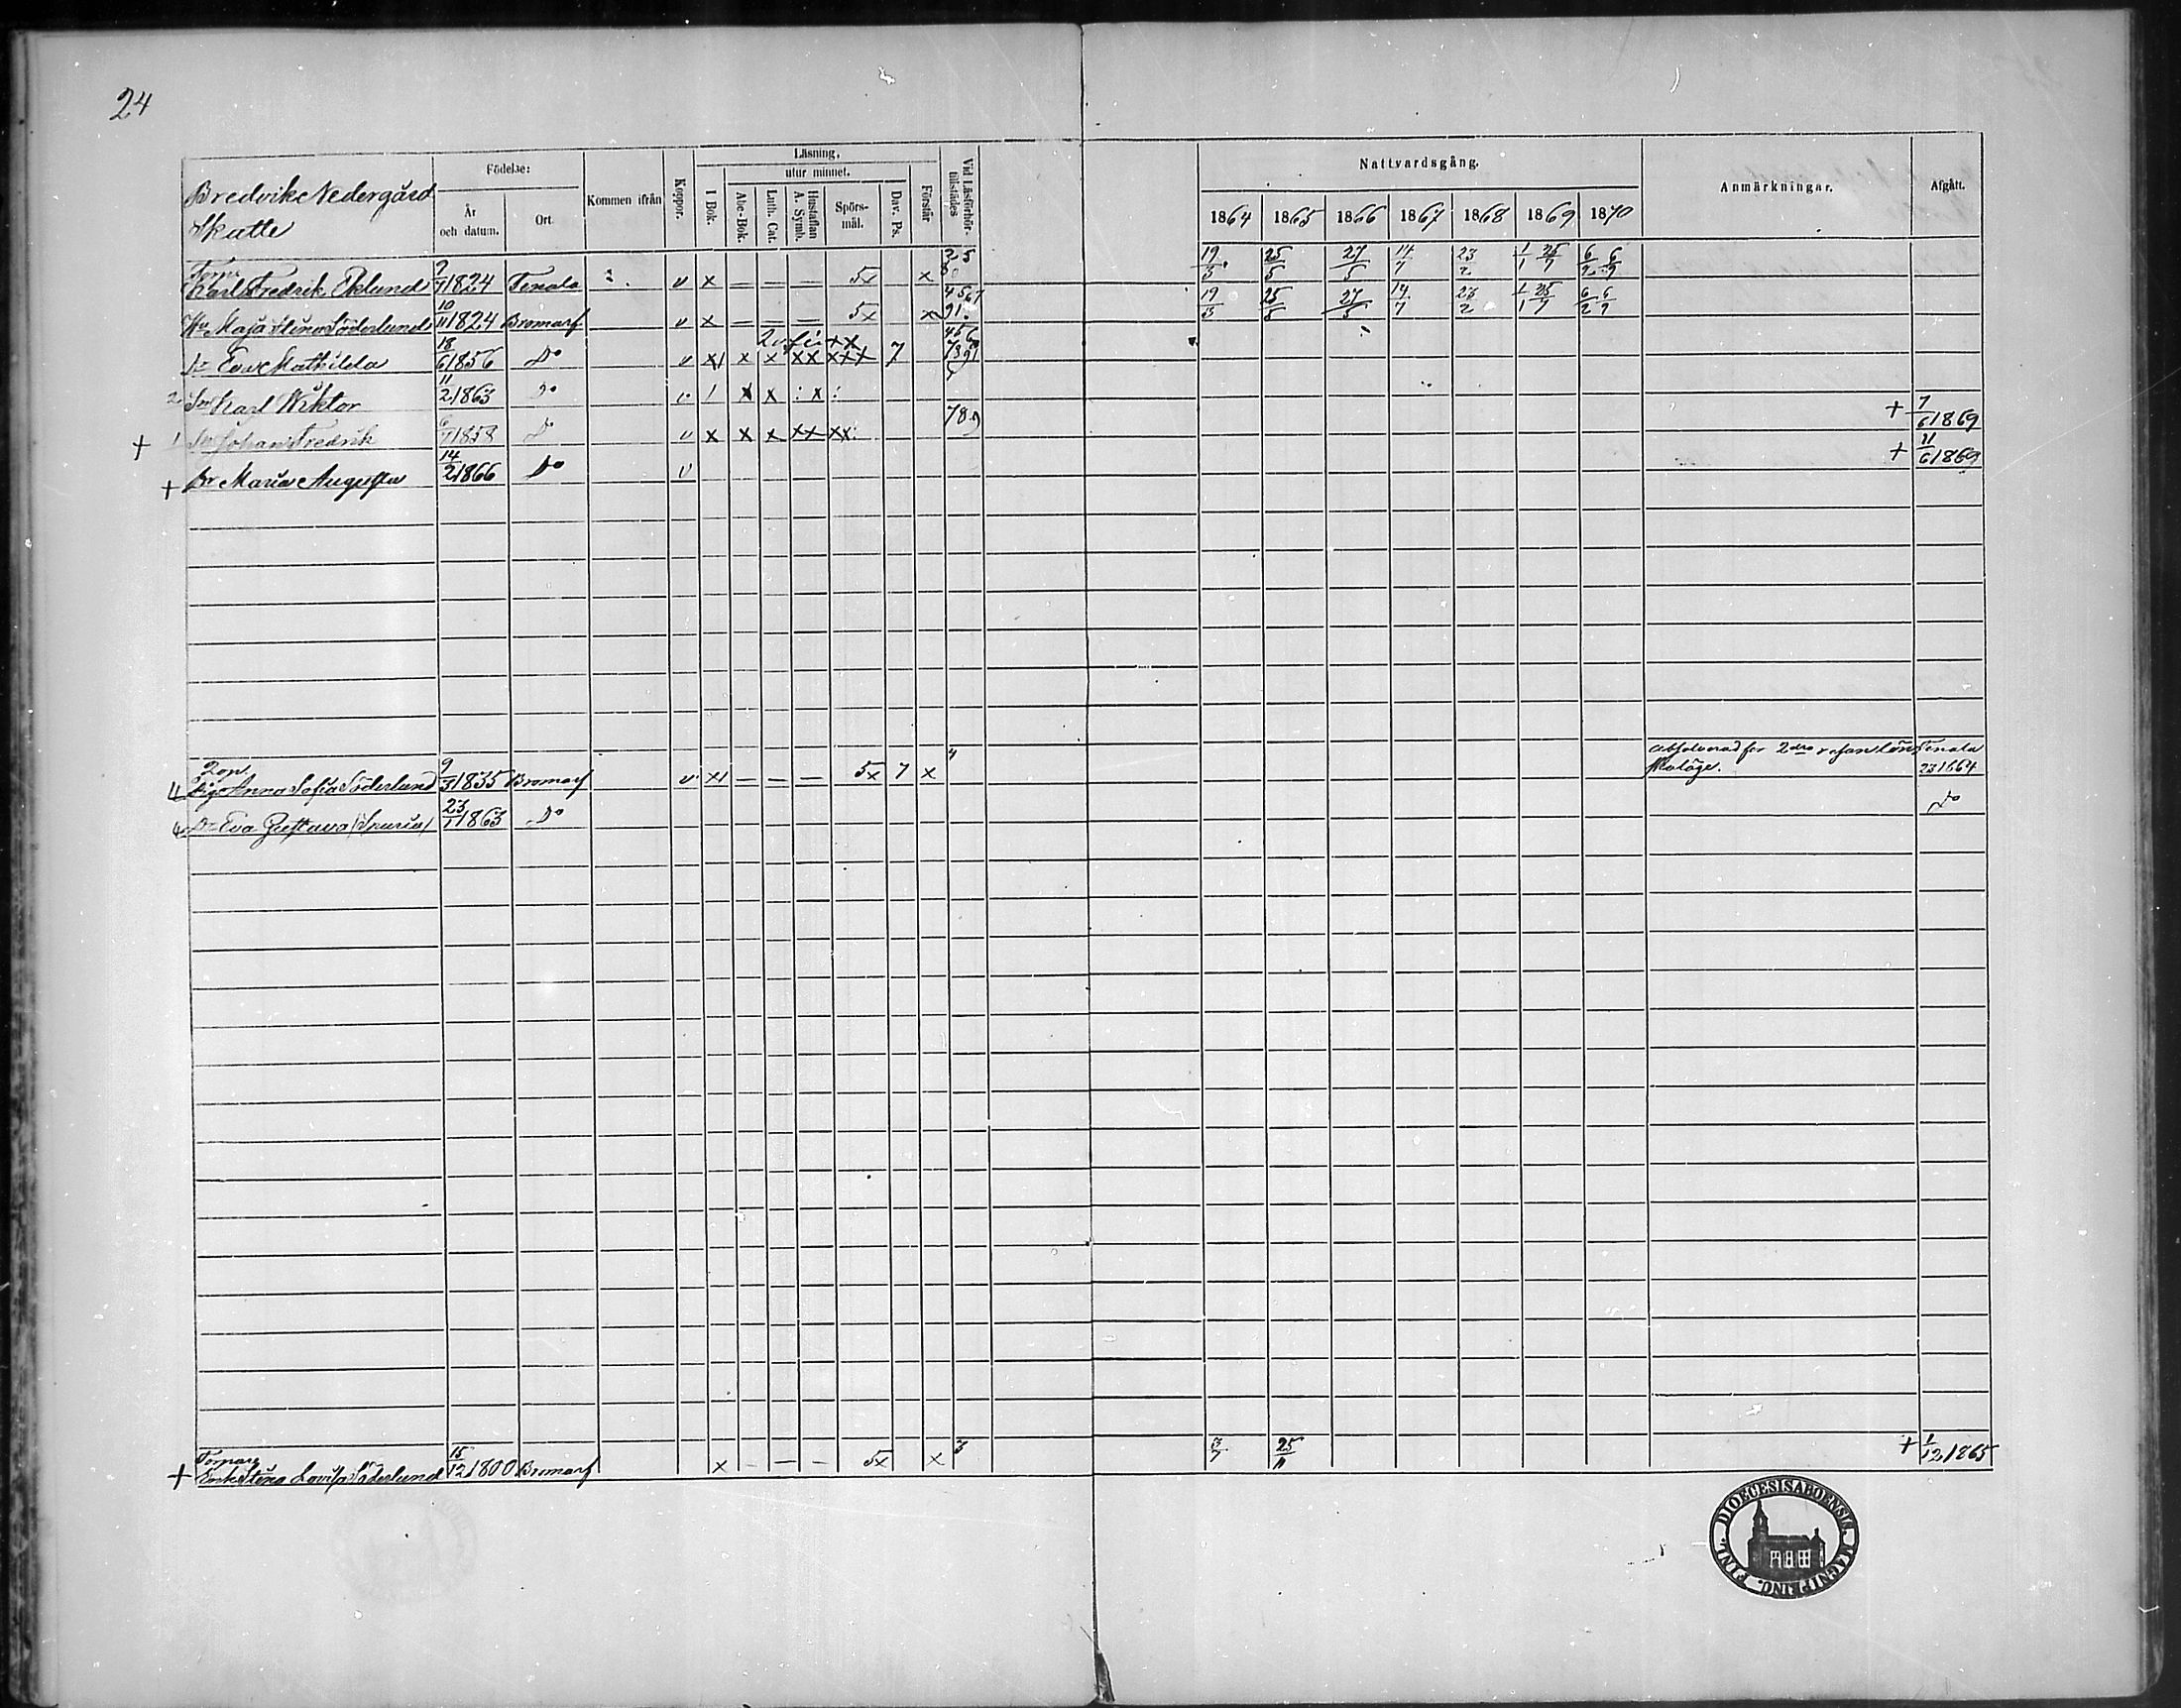 24
Bredvik Nedergård
Skatte
Födelse:
År och datum.
Ort
Kommen ifrån
Koppor.
Läsning,
I Bok.
utur minnet.
Abc-Bok.
Luth. Cat.
Hustaflan A. Symb.
Spörs-mål.
Dav. Ps.
Förstår
Vid Läsförhör tillstädes
Nattvardsgång.
1864 1865 1866 1867 1868 1869 1870
Anmärkningar.
Afgått.
Karl Fredrik Eklund 1824 Tenala v x — — — 5x x 19/5 25/5 27/5 14/7 23/2 1/1 25/7 6/2 6/9
Hu Maja Stina Söderlund 10/11 1824 Bromarf v x — — — 5x x 19/5 25/5 27/5 14/7 23/2 1/1 25/7 6/2
Dr Eva Mathilda 18/6 1856 Do v x x x xx xxx 7
2 Sn Karl Wiktor 11/2 1863 Do v x x : x :
+ 1 Sn Johan Fredrik 1858 Do v x x x xx xx 789 + 7/6 1869
+ Dr Maria Augusta 14/2 1866 Do v + 11/6 1869
Pig Anna Sofia Söderlund 9/3 1835 Bromarf v — — — 5x 7 x 4 Absolverad för 2dra resan lönskaläge. Tenala
Dr Eva Gustava (Spuria) 23/1 1863 Do Do
Torpare
+ Enk Stina Lovisa Söderlund 15/12 1800 Bromarf x — — — 5x x 3 25/11 + 1/12 1865
DIOECESIS ABOENSIS. MAGNI PRINC. FINL.